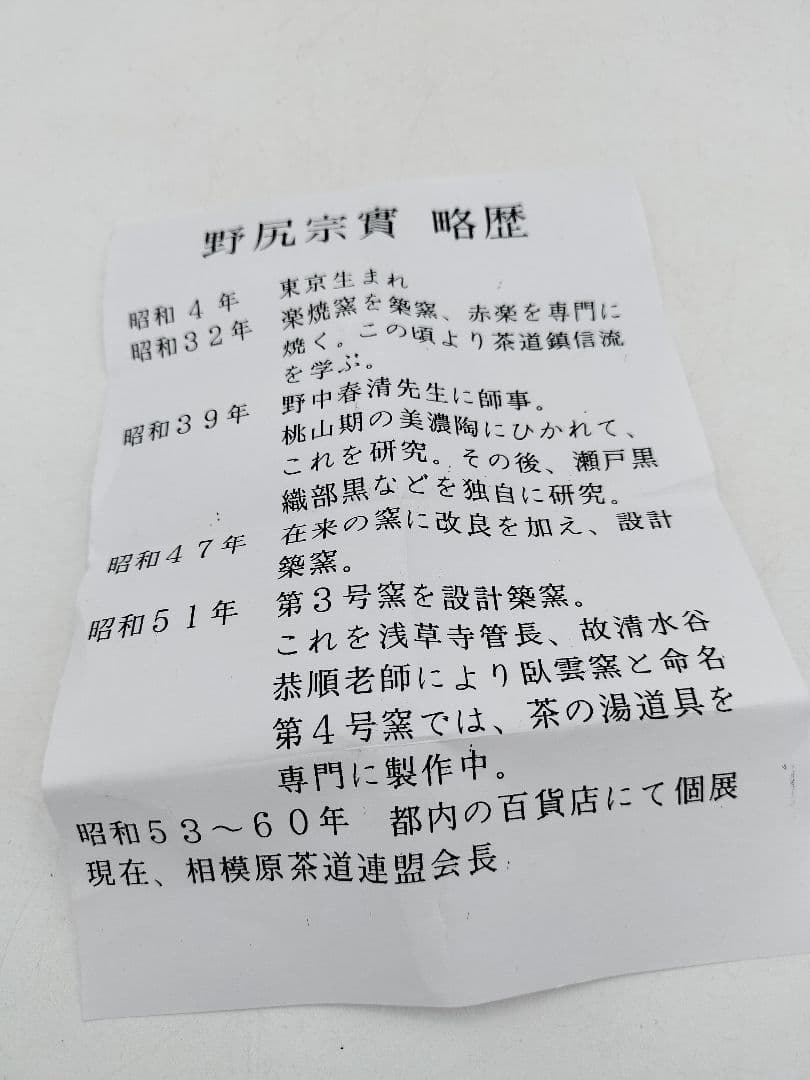 野尻宗實 略歴
昭和４年 東京生まれ
昭和３２年 楽焼窯を築窯、赤楽を専門に
焼く。この頃より茶道鎮信流
を学ぶ。
昭和３９年 野中春清先生に師事。
桃山期の美濃陶にひかれて、
これを研究。その後、瀬戸黒
織部黒などを独自に研究。
昭和４７年 在来の窯に改良を加え、設計
築窯。
昭和５１年 第３号窯を設計築窯。
これを浅草寺管長、故清水谷
恭順老師により臥雲窯と命名
第４号窯では、茶の湯道具を
専門に製作中。
昭和５３～６０年 都内の百貨店にて個展
現在、相模原茶道連盟会長